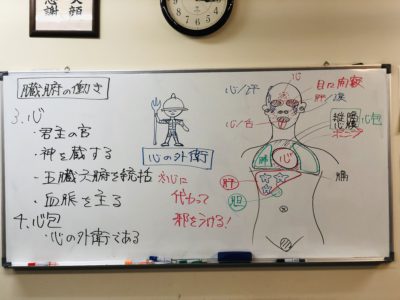 感謝
笑顔
臓腑の働き
3.心
・君主の官
・神を蔵する
・五臓六腑を統括
・血脈を主る
4.心包
・心の外衛である
心の外衛
心に
代わって
邪をうける!
心
心/汗
肝/涙
心/舌
心包
肺
心
肝
胆